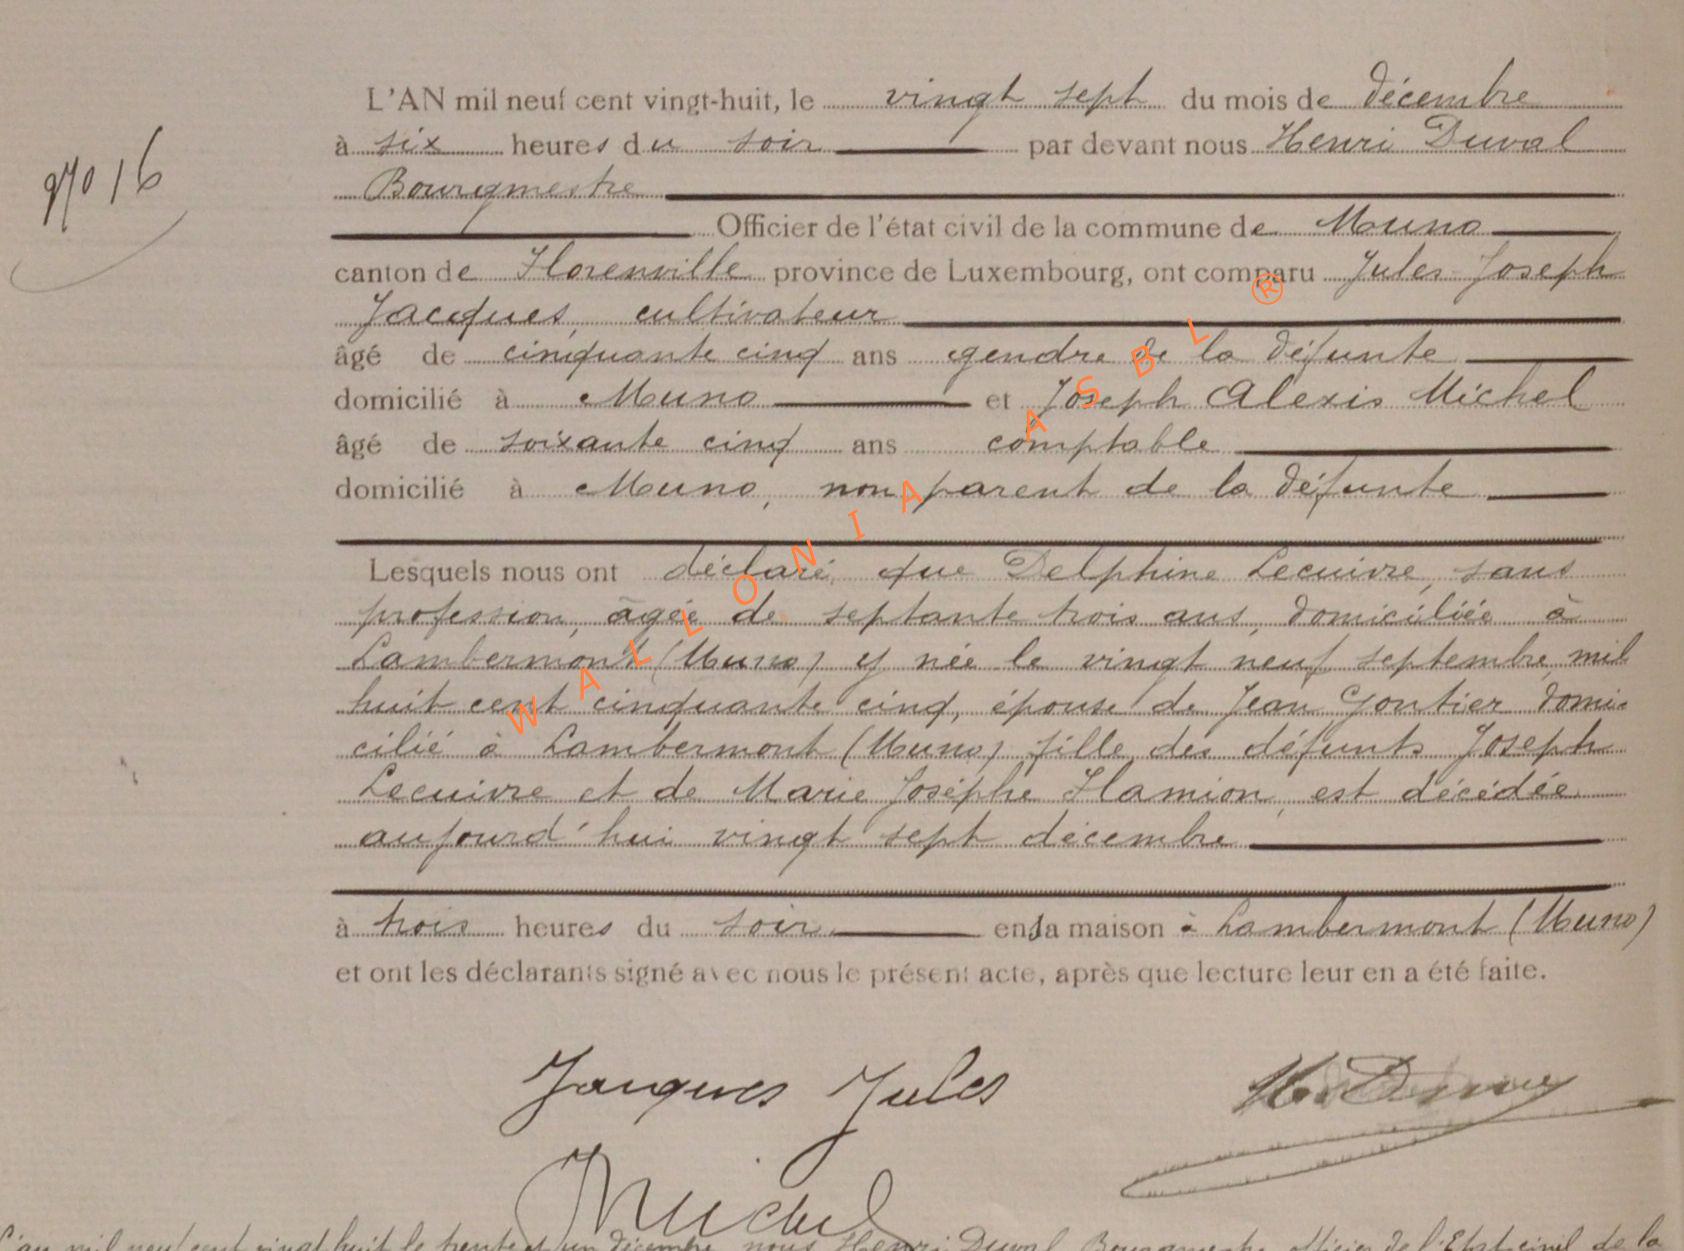 L'AN mil neuf cent vingt-huit, le vingt sept du mois de décembre
à six heures du soir par devant nous Henri Duval
No 16
Bourgmestre
Officier de l'état civil de la commune de Muno
canton de Florenville province de Luxembourg, ont comparu Jules Joseph
Jacques, cultivateur
âgé de cinquante cinq ans gendre de la défunte
domicilié à Muno et Joseph Alexis Michel
âgé de soixante cinq ans comptable
domicilié à Muno, non parent de la défunte
Lesquels nous ont déclaré, que Delphine Lecuivre, sans
profession, âgée de septante trois ans, domiciliée à
Lambermont (Muno) y née le vingt neuf septembre mil
huit cent cinquante cinq, épouse de Jean Gontier domi-
cilié à Lambermont (Muno) fille des défunts Joseph
Lecuivre et de Marie Joséphe Hamion, est décédée
aujourd'hui vingt sept décembre
à trois heures du soir en la maison à Lambermont (Muno)
et ont les déclarants signé avec nous le présent acte, après que lecture leur en a été faite.
Jacques Jules
H. Duval
Michel
L'an mil neuf cent vingt huit le trente et un décembre nous Henri Duval Bourgmestre officier de l'Etat civil de la
WALLONIA ASBL ®